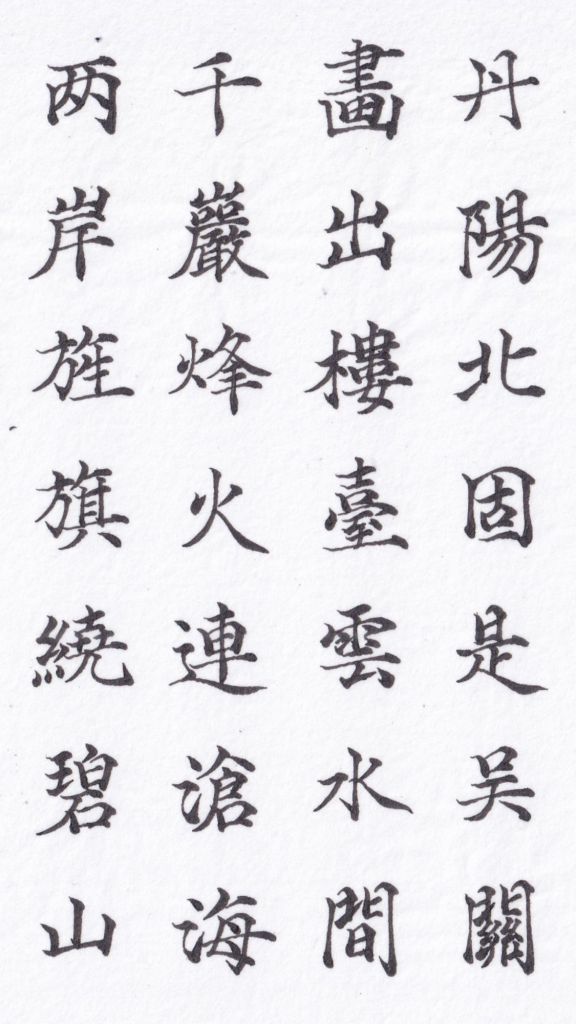 丹陽北固是吴關
畫出樓臺雲水間
千巖烽火連滄海
两岸旌旗繞碧山